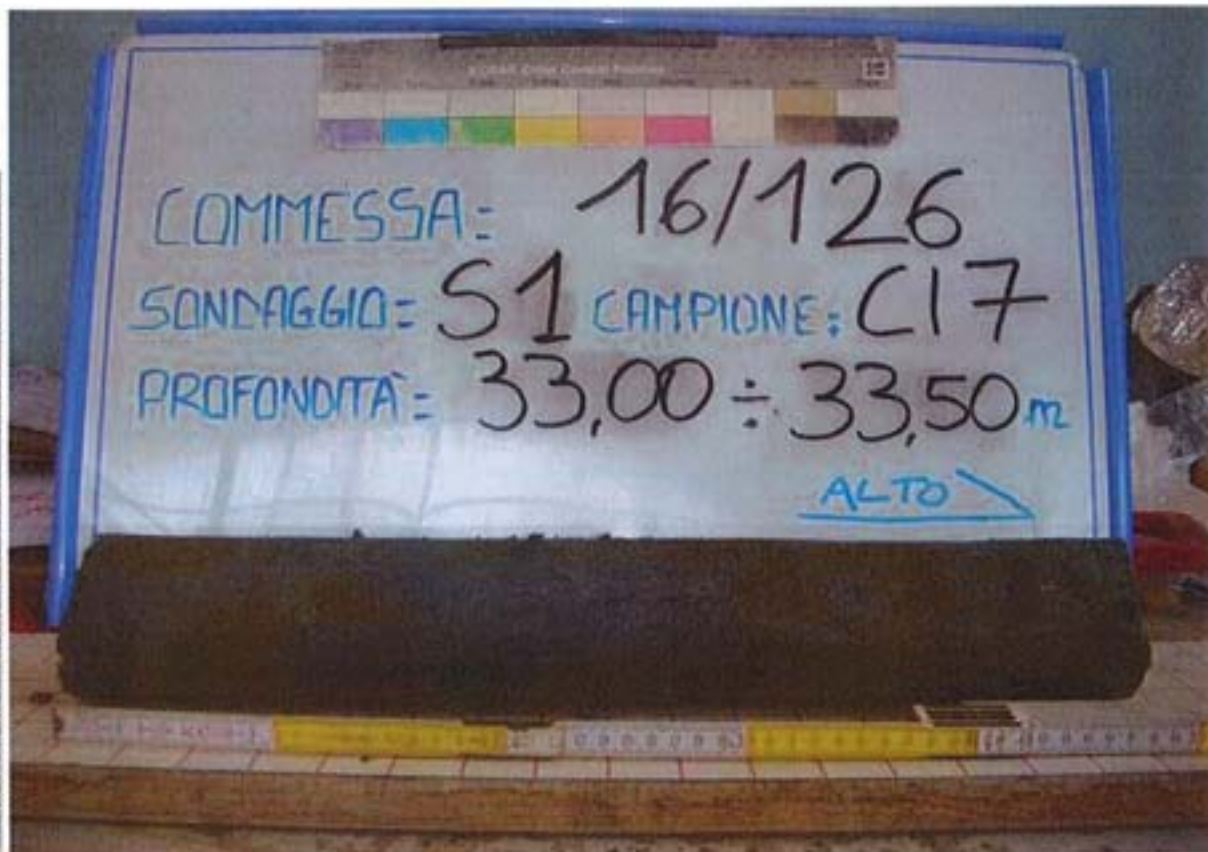 COMMESSA: 16/126
SONDAGGIO: S1 CAMPIONE: CI7
PROFONDITÀ: 33,00 ÷ 33,50 m
ALTO